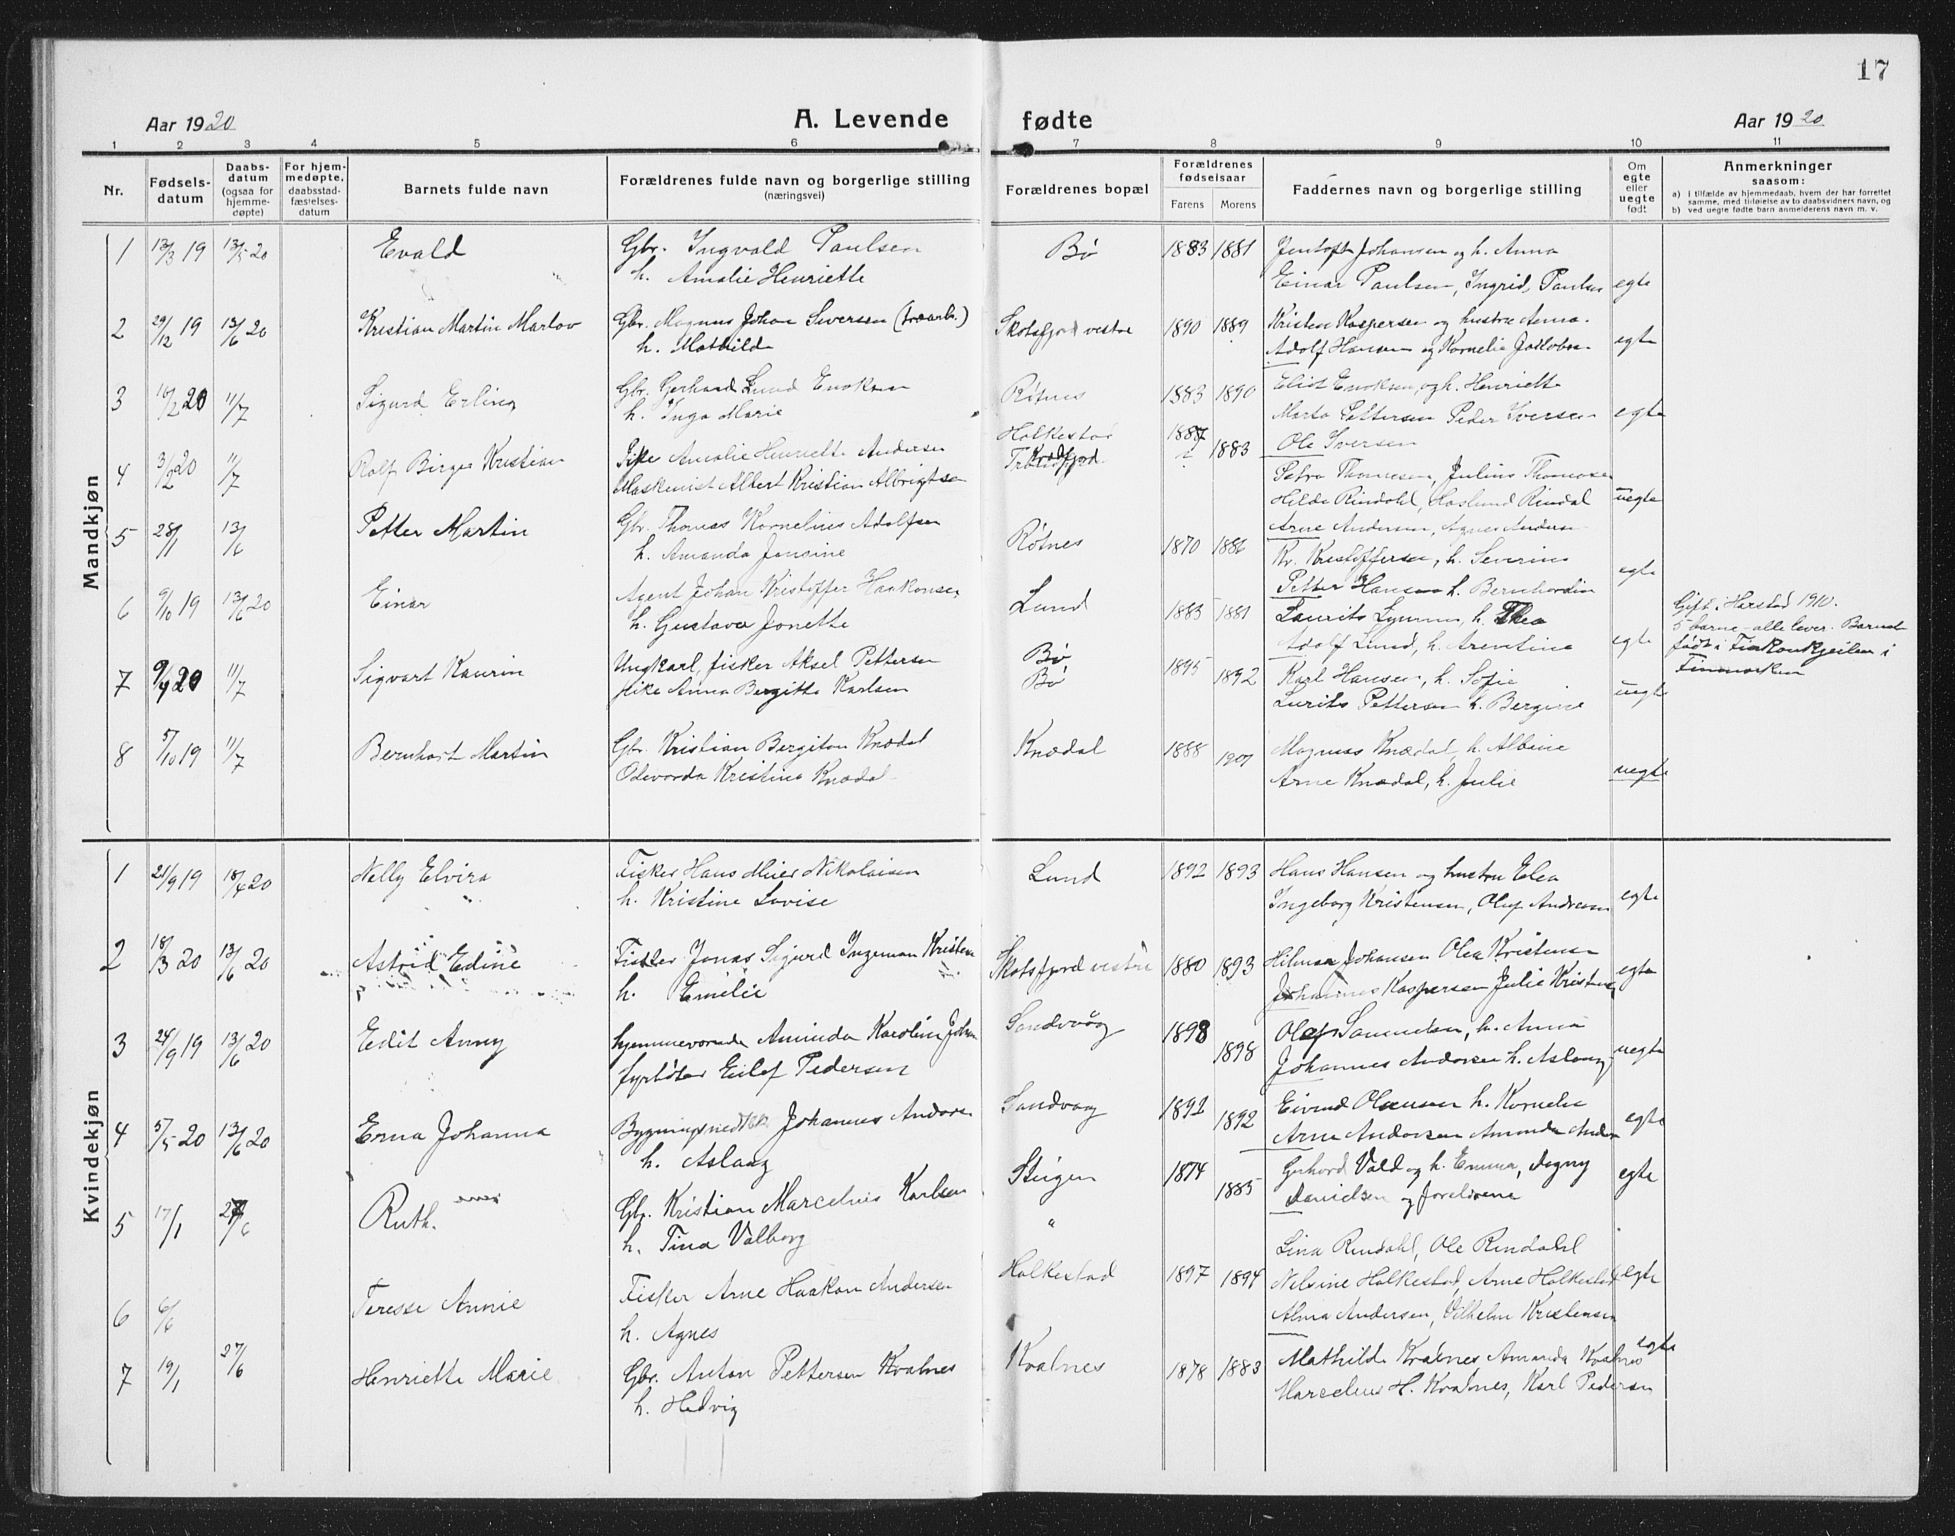 17
Aar 1920 A. Levende fødte Aar 1920
1 2 3 4 5 6 7 8 9 10 11
Nr. Fødselsdatum Daabsdatum (ogsaa for hjemmedøpte) For hjemmedøpte, daabsstadfæstelsesdatum Barnets fulde navn Forældrenes fulde navn og borgerlige stilling (næringsvei) Forældrenes bopæl Forældrenes fødselsaar Farens Morens Faddernes navn og borgerlige stilling Om egte eller uegte født Anmerkninger saasom:
a) i tilfælde av hjemmedaab, hvem der har forrettet samme, med tilføielse av to daabsvidners navn, og
b) ved uegte fødte barn anmelderens navn m. v.
Mandkjøn
1 13/3 19 13/5 20 Evald Gbr. Ingvald Paulsen Bø 1883 1881 Jentoft Johansen og h. Anna
h. Amalie Henriette Einar Paulsen, Ingrid Paulsen egte
2 29/12 19 13/6 20 Kristian Martin Marlov Gbr. Magnus Johan Sivertsen Skotsfjord vestre 1890 1889 Kristen Kaspersen og hustru Anna
h. Mathilde Adolf Hansen og Kornelie Jakobsen egte
3 16/2 20 11/7 Sigurd Erling Gbr. Gerhard Lund Enoksen Røtnes 1883 1890 Enoksen, og h. Henriette
h. Inga Marie Marta Pettersen Peder Iversen egte
Ole Iversen
4 3/2 20 11/7 Rolf Birger Kristian Pike Amalie Henriette Andersen Holkestad 1887 1883 Petra Thomesen, Julius Thomesen
Maskinist Albert Kristian Albrigtsen Hilda Rindahl, Haslund Rindal uegte
Arne Andersen, Agnes Andersen
5 28/1 13/6 Petter Martin Gbr. Thomas Kornelius Adolfsen Røtnes 1870 1886 Kr. Kristoffersen, h. Severine
h. Amanda Jensine Petter Hansen h. Bernhardin egte
6 9/10 19 13/6 20 Einar Agent Johan Kristoffer Haakonsen Lund 1885 1881 Laurits h. Thea Gift i Harstad 1910.
h. Gustava Jonette Adolf Lund, h. Arentine egte 5 barne - alle lever. Barnet
født i Finkonkjeilen i
Finmarken
7 9/4 20 11/7 Sigvart Kaurin Ungkarl, fisker Aksel Pettersen Bø 1895 1892 Karl Hansen, h. Sofie
Pike Anna Bergitte Karlsen Bø Lurits Pettersen h. Bergine uegte
8 5/10 19 11/7 Bernhart Martin Gbr. Kristian Bergiton Knædal Knædal 1888 1901 Magnus Knædal, h. Albine
Odevarda Kristine Knædal Arne Knædal, h. Julie uegte
Kvindekjøn
1 21/9 19 18/4 20 Nelly Elvira Fisker Hans Meier Nikolaisen Lund 1892 1893 Hans Hansen og hustru Elea
h. Kristine Lovise Ingeborg Kristensen, Oluf Andresen egte
2 18/3 20 13/6 20 Astrid Edine Fisker Jonas Sigurd Ingeman Kristensen Skotsfjord vestre 1880 1893 Hilmar Johansen Olea Kristensen
h. Emelie Johannes Kaspersen Julie Kristensen egte
3 24/9 19 13/6 20 Edit Anny hjemmeværende Aminda Karoline Johan Sandvaag 1898 1898 Olaf Samuelsen, h. Anna
fyrbøter Eilef Pedersen Johannes Andersen h. Aslaug uegte
4 5/5 20 13/6 20 Erna Johanna Johannes Anders Sandvaag 1892 1892 Eivind Olausen h. Kornelie
h. Aslaug Arne Andersen Amanda Ander egte
5 17/1 27/6 Ruth. Gbr. Kristian Marcelius Karlsen Steigen 1874 1885 Gerhard Vold og h. Emma, Dagny
h. Tina Valborg " Danielsen og forældrene egte
6 6/6 Teresse Annie Fisker Arne Haakon Andersen Holkestad 1897 1894 Lina Rindahl, Ole Rindahl
h. Agnes Nelvine Holkestad, Arne Holkestad egte
Alma Andersen, Vilhelm Kristensen
7 19/1 27/6 Henriette Marie Gbr. Anton Pettersen Kvalnes Kvalnes 1878 1883 Mathilde Kvalnes, Amanda Kvalnes egte
h. Hedvig Marcelius H. Kvalnes, Karl Pedersen